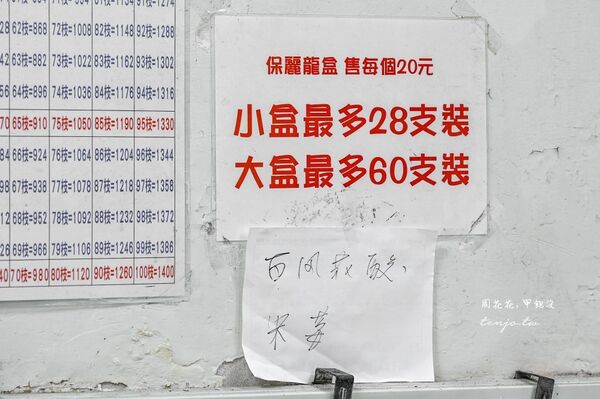 62枝=868 72枝=1008 82枝=1148 92枝=1288
63枝=882 73枝=1022 83枝=1162 93枝=1302
64枝=896 74枝=1036 84枝=1176 94枝=1316
70 65枝=910 75枝=1050 85枝=1190 95枝=1330
84 66枝=924 76枝=1064 86枝=1204 96枝=1344
67枝=938 77枝=1078 87枝=1218 97枝=1358
12 68枝=952 78枝=1092 88枝=1232 98枝=1372
69枝=966 79枝=1106 89枝=1246 99枝=1386
40 70枝=980 80枝=1120 90枝=1260 100枝=1400
保麗龍盒 售每個20元
小盒最多28支裝
大盒最多60支裝
周花花,甲飽沒
tenjo.tw